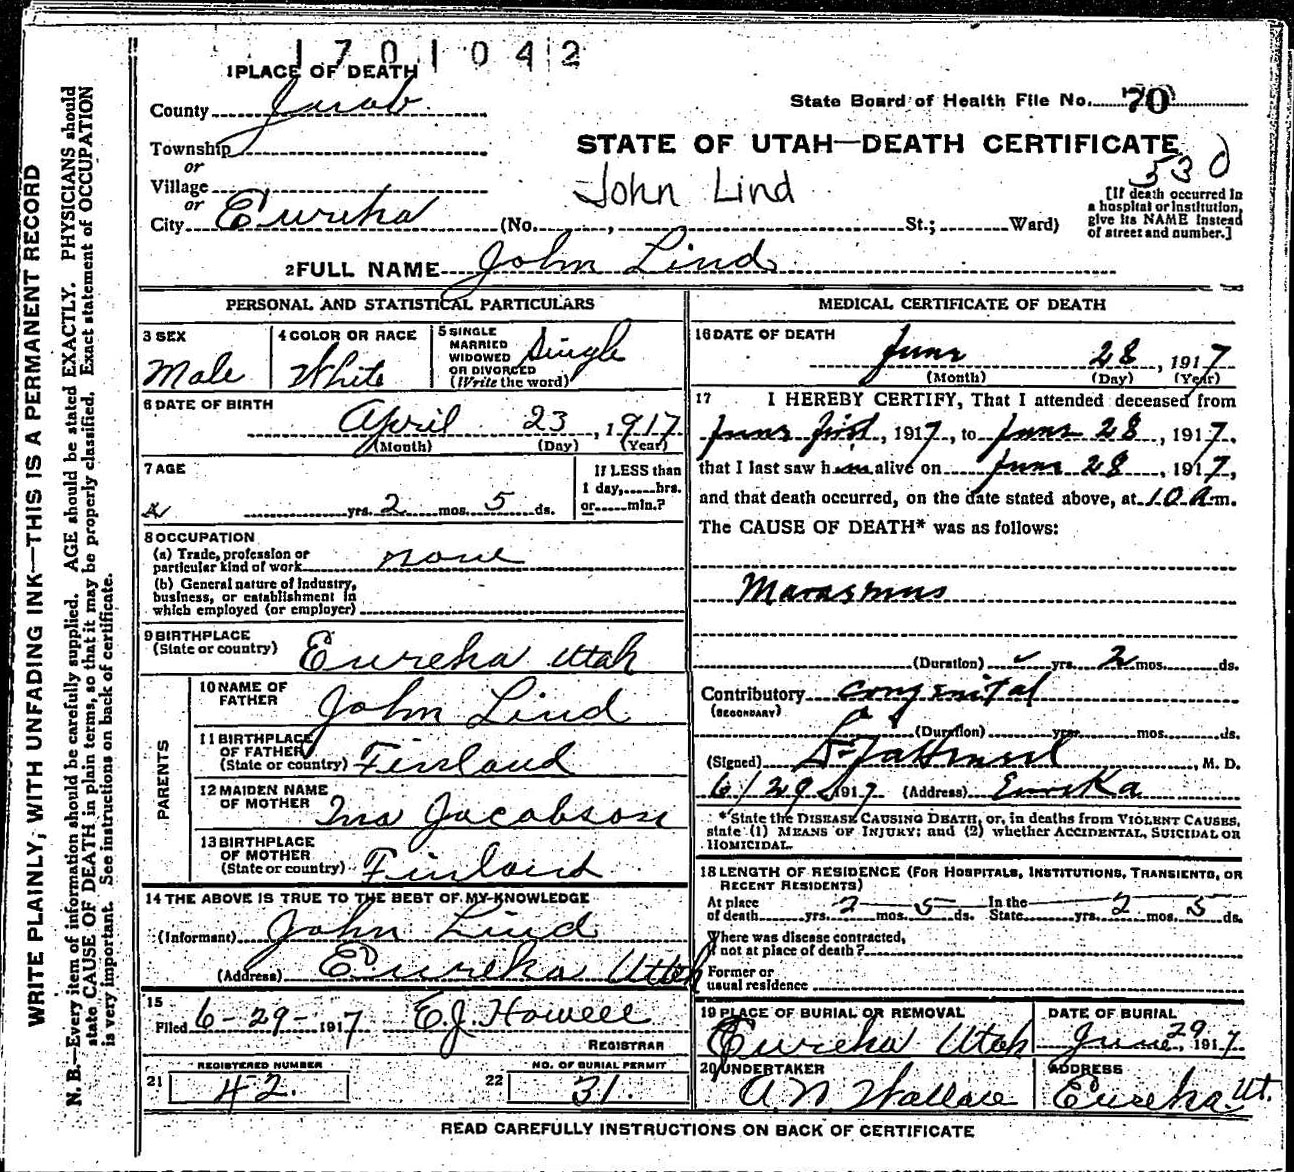 1701042
1 PLACE OF DEATH
County Juab
State Board of Health File No. 70
Township
or
Village
or
City Eureka
STATE OF UTAH—DEATH CERTIFICATE
530
John Lind
[If death occurred in
a hospital or institution,
give its NAME instead
of street and number.]
(No. , St.; Ward)
2 FULL NAME John Lind
PERSONAL AND STATISTICAL PARTICULARS
3 SEX
Male
4 COLOR OR RACE
White
5 SINGLE
MARRIED
WIDOWED
OR DIVORCED
(Write the word)
Single
6 DATE OF BIRTH
April 23, 1917
(Month) (Day) (Year)
7 AGE
yrs. 2 mos. 5 ds.
If LESS than
1 day, hrs.
or min.?
8 OCCUPATION
(a) Trade, profession or
particular kind of work none
(b) General nature of industry,
business, or establishment in
which employed (or employer)
9 BIRTHPLACE
(State or country) Eureka Utah
PARENTS
10 NAME OF
FATHER John Lind
11 BIRTHPLACE
OF FATHER
(State or country) Finland
12 MAIDEN NAME
OF MOTHER Ina Jacobson
13 BIRTHPLACE
OF MOTHER
(State or country) Finland
14 THE ABOVE IS TRUE TO THE BEST OF MY KNOWLEDGE
(Informant) John Lind
(Address) Eureka Utah
15
Filed 6-29- 1917 E.J. Howell
REGISTRAR
REGISTERED NUMBER
21 42.
NO. OF BURIAL PERMIT
22 31.
MEDICAL CERTIFICATE OF DEATH
16 DATE OF DEATH
June 28, 1917
(Month) (Day) (Year)
17 I HEREBY CERTIFY, That I attended deceased from
June first, 1917, to June 28, 1917,
that I last saw him alive on June 28, 1917,
and that death occurred, on the date stated above, at 10 A m.
The CAUSE OF DEATH* was as follows:
Marasmus
(Duration) yrs. 2 mos. ds.
Contributory congenital
(SECONDARY)
(Duration) yrs. mos. ds.
(Signed) , M. D.
6/29 1917 (Address) Eureka
*State the DISEASE CAUSING DEATH, or, in deaths from VIOLENT CAUSES,
state (1) MEANS OF INJURY; and (2) whether ACCIDENTAL, SUICIDAL OR
HOMICIDAL.
18 LENGTH OF RESIDENCE (FOR HOSPITALS, INSTITUTIONS, TRANSIENTS, OR
RECENT RESIDENTS)
At place
of death yrs. 2 mos. 5 ds. In the
State yrs. 2 mos. 5 ds.
Where was disease contracted,
if not at place of death?
Former or
usual residence
19 PLACE OF BURIAL OR REMOVAL
Eureka Utah
DATE OF BURIAL
June 29, 1917.
20 UNDERTAKER
A. N. Wallace
ADDRESS
Eureka Ut.
READ CAREFULLY INSTRUCTIONS ON BACK OF CERTIFICATE
WRITE PLAINLY, WITH UNFADING INK—THIS IS A PERMANENT RECORD
N. B.—Every item of information should be carefully supplied. AGE should be stated EXACTLY. PHYSICIANS should
state CAUSE OF DEATH in plain terms, so that it may be properly classified. Exact statement of OCCUPATION
is very important. See instructions on back of certificate.